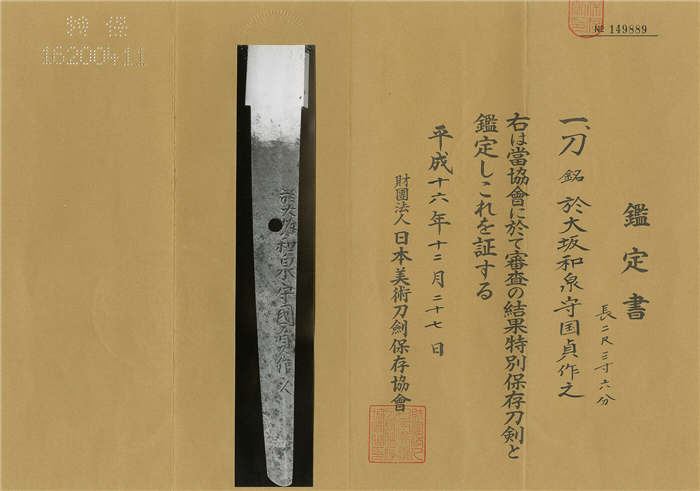 特 保
16200411
№ 149889
鑑定書
長二尺三寸六分
一、刀 銘 於大坂和泉守国貞作之
右は當協會に於て審査の結果特別保存刀剣と
鑑定しこれを証する
平成十六年十二月二十七日
財團法人 日本美術刀劍保存協會
和泉守國貞作